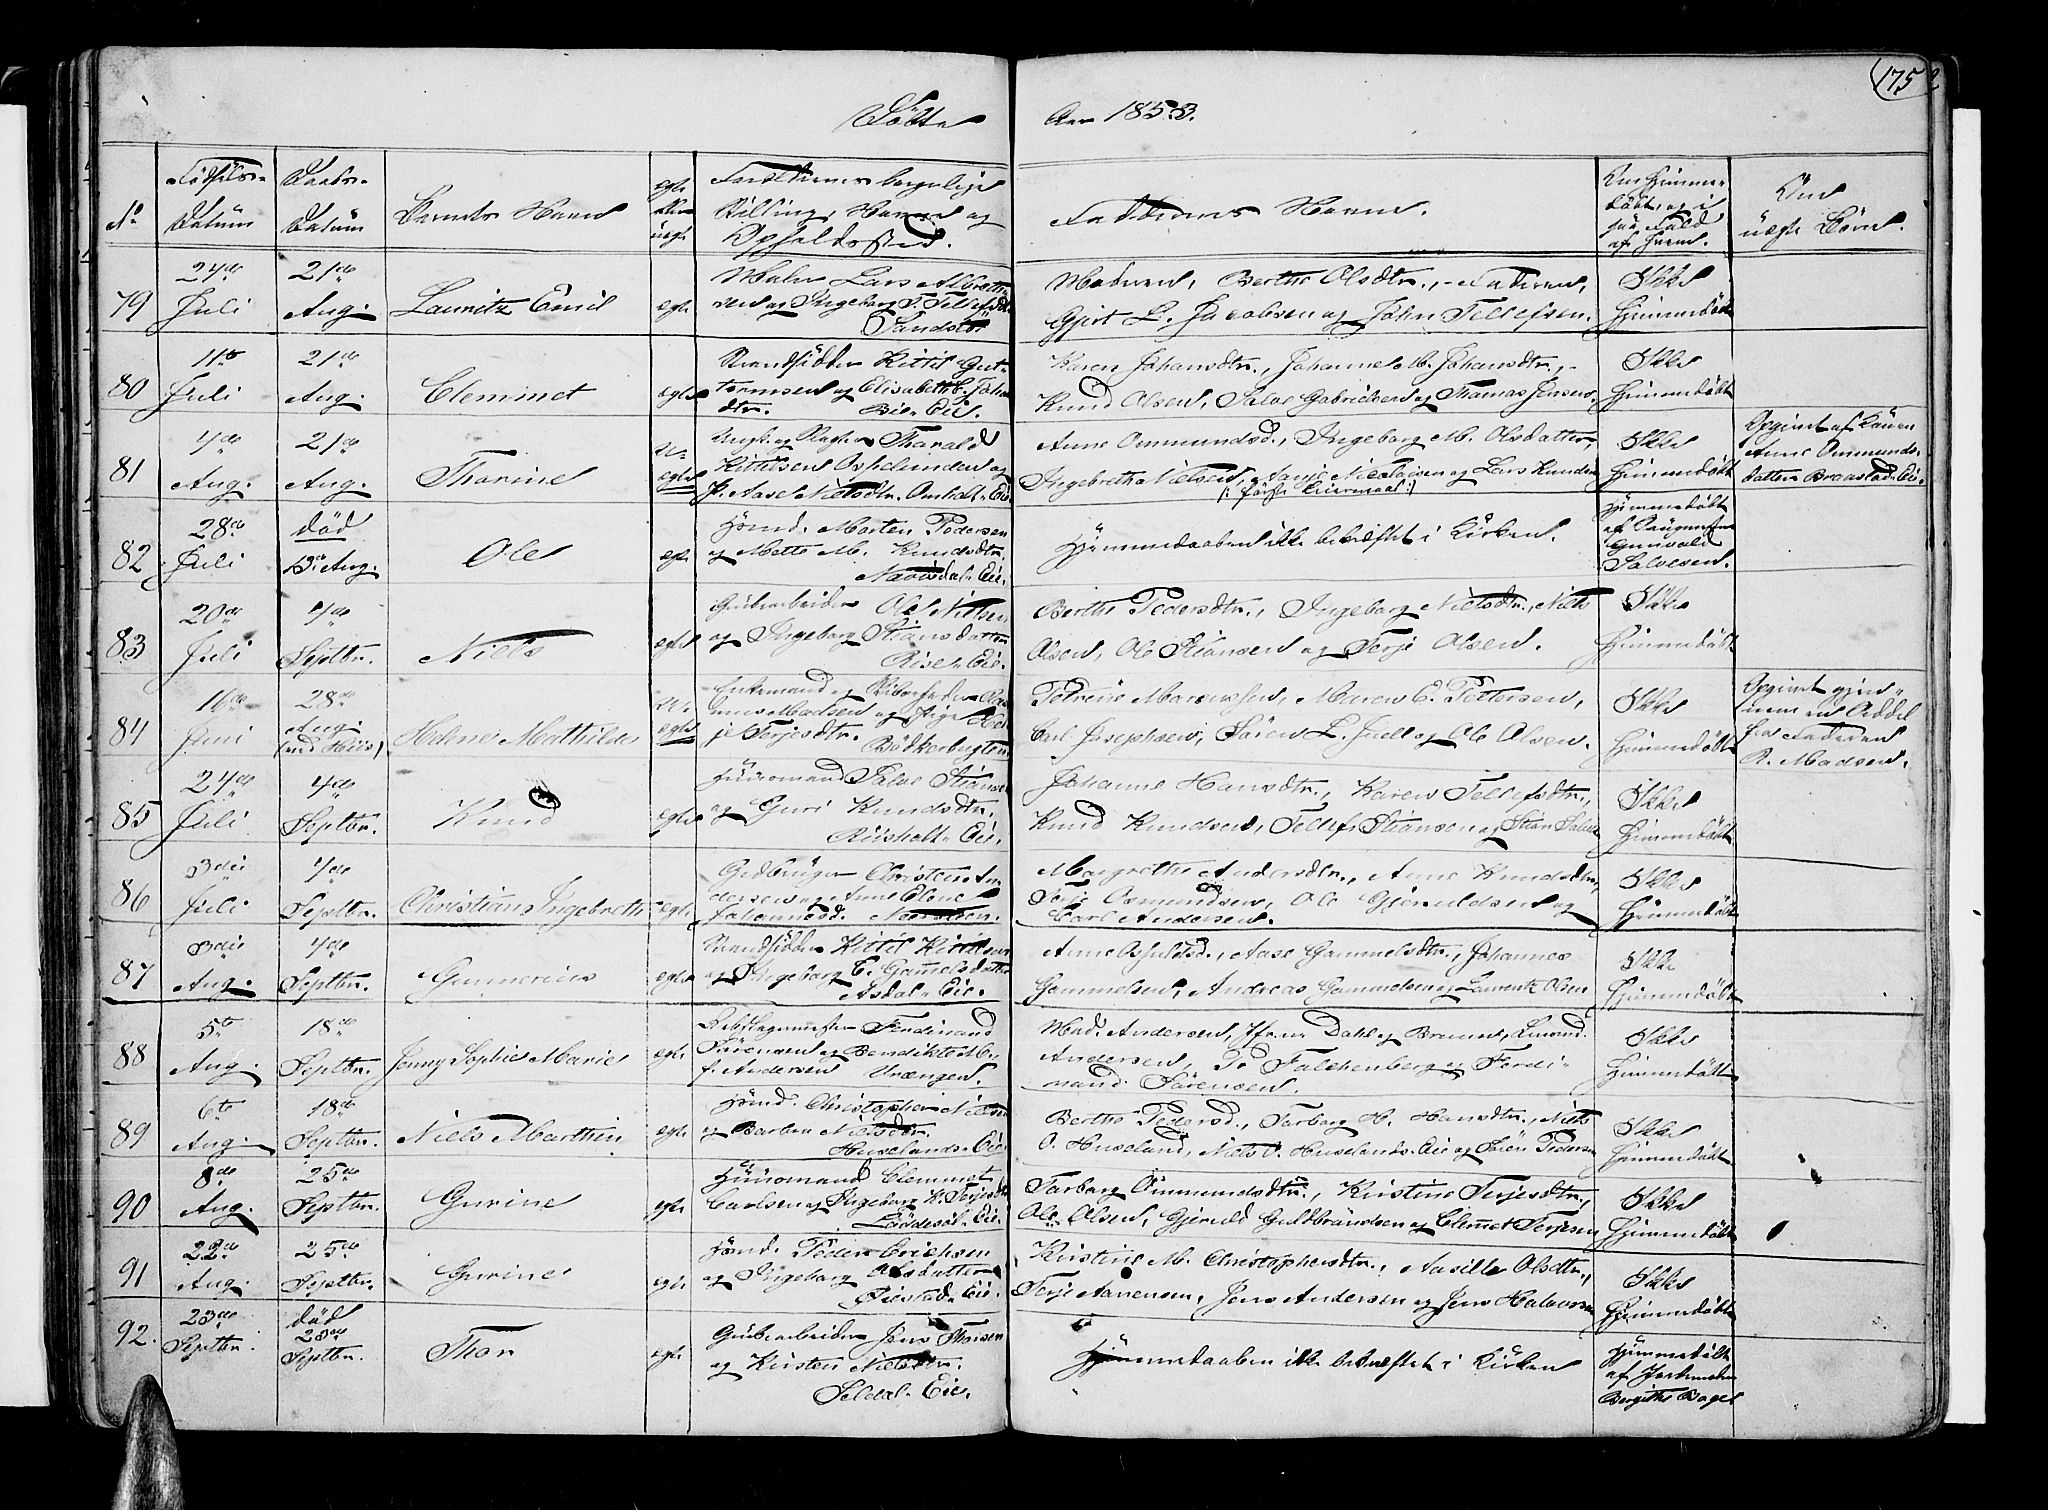 175
Döbte
Aar 1853.
No
Födsels-
Datum
Daabs-
Datum
Barnets Navn
egte
eller
uegte
Forældrenes borgerlige
Stilling, Navne og
Opholdssted.
Faddernes Navne.
Om Hjemme-
döbt, og i
saa Fald
af hvem.
Om
uægte Börn.
79
24de
Juli
21de
Aug.
Lauritz Emil
egte
Lars
og Ingeborg T. Tellefsdtr.
Berthe Olsdtr.,
Gjert L. Jacobsen og John Tellefsen.
Ikke
Hjemmedöbt
80
11te
Juli
21de
Aug.
Clemmet
egte
Strandsidder Kittil Gut-
tormsen og Elisabeth C. Johan
dtr.
Bie Eie.
Karen Johansdtr., Johanne M. Johansdtr.,
Knud Olsen, Salve Gabrielsen og Thomas Jensen.
Ikke
Hjemmedöbt
81
4de
Aug.
21de
Aug.
Thorine
U-
egte
Ungk. og Tharald
Kittelsen og
P. Aasel Nielsdtr. Omholt Eie
Anne Ommundsd., Ingeborg M. Olsdatter,
Ingebreth Nielsen, Terje Nielsen og Lars Knudsen
(: förste Leiermaal :)
Ikke
Hjemmedöbt
Opgivet af Konen
Anne Ommunds-
datter Braastad Eie.
82
28de
Juli
död
13de Aug.
Ole
egte
Hmd. Morten Pedersen
og Mette M. Knudsdtr.
Eie.
Hjemmedaaben ikke bekræftet i Kirken.
Hjemmedöbt
af
Gunvald
Salvesen.
83
20de
Juli
4de
Septbr.
Niels
egte
Grubearbeider Ole Nielsen
og Ingeborg Stiansdatter
Riise Eie.
Berthe Pedersdtr., Ingeborg Nielsdtr., Niels
Olsen, Ole Stiansen og Terje Olsen.
Ikke
Hjemmedöbt
84
16de
Juni
28de
Aug.
(ved Hiis)
Helene Mathilde
U-
egte
Enkemand og
Madsen og Pige
Terjesdtr. Bödkerbugten
Petrine Marcussen, Maren E. Pettersen,
Carl Josephsen, Sören L. Juell og Ole Olsen.
Ikke
Hjemmedöbt
Opgivet gjen-
nem en Seddel
fra Faderen
R. Madsen.
85
24de
Juli
4de
Septbr.
Knud
egte
Huusmand Salve Stiansen
og Guri Knudsdtr.
Riisholt Eie.
Johanne Hansdtr., Karen Tellefsdtr.,
Knud Knudsen, Tellef Stiansen og Stian Salvesen
Ikke
Hjemmedöbt
86
3die
Juli
4de
Septbr.
Christian Ingebreth
egte
Gdbruger Christen An-
dersen og Anne Elene
Johannesd. Næs
Margrethe Andersdtr., Anne Knudsdtr.,
Terje Osmundsen, Ole Gjeruldsen og
Carl Andersen.
Ikke
Hjemmedöbt
87
3die
Aug.
4de
Septbr.
Gunerius
egte
Strandsidder Kittil Kittilsen
og Ingeborg E. Gamelsdatter
Asdal Eie.
Anne Asfuldsd., Aase Gammelsdtr., Johannes
Gammelsen, Andreas Gammelsen og Laurentz Olsen
Ikke
Hjemmedöbt
88
5te
Aug.
18de
Septbr.
Jenny Sophie Marie
egte
Rebslagermester Ferdinand
Sörensen og Bendikte M.
f. Andersen Vrængen.
Mad. Andersen, Jfr.ne Dahl og Bruun,
Andersen, P. Falchenberg og Ferdi-
nand Sörensen.
Ikke
Hjemmedöbt
89
6te
Aug.
18de
Septbr.
Niels Marthin
egte
Hmd. Christopher Nielsen
og Barbra Nielsdtr.
Huseland Eie
Berthe Pedersd., Tarborg H. Hansdtr., Niels
O. Huseland, Niels O. Huselands Eie og Sören Pedersen
Ikke
Hjemmedöbt
90
8de
Aug.
25de
Septbr.
Gurine
egte
Huusmand Clemmet
Carlsen og Ingeborg K. Terjesdtr.
Löddesöl Eie.
Tarborg Ommundsdtr., Kirstine Terjesdtr.,
Ole Olsen, Gjeruld Guldbrandsen og Clemet Terjesen
Ikke
Hjemmedöbt
91
22de
Aug.
25de
Septbr.
Gurine
egte
Hmd. Peder Erichsen
og Ingeborg Olsdatter
Eie.
Kristine M. Christophersdtr., Aasille Olsdtr.,
Terje Aanensen, Jens Andersen og Jens Halvorsen
Ikke
Hjemmedöbt
92.
23de
Septbr.
död
23de
Septbr.
Thor
egte
Grubearbeider Jens Thorsen
og Kirsten Nielsdtr.
Seldal Eie.
Hjemmedaaben ikke bekræftet i Kirken
Hjemmedöbt
af Jordemoder
Bergithe Boget